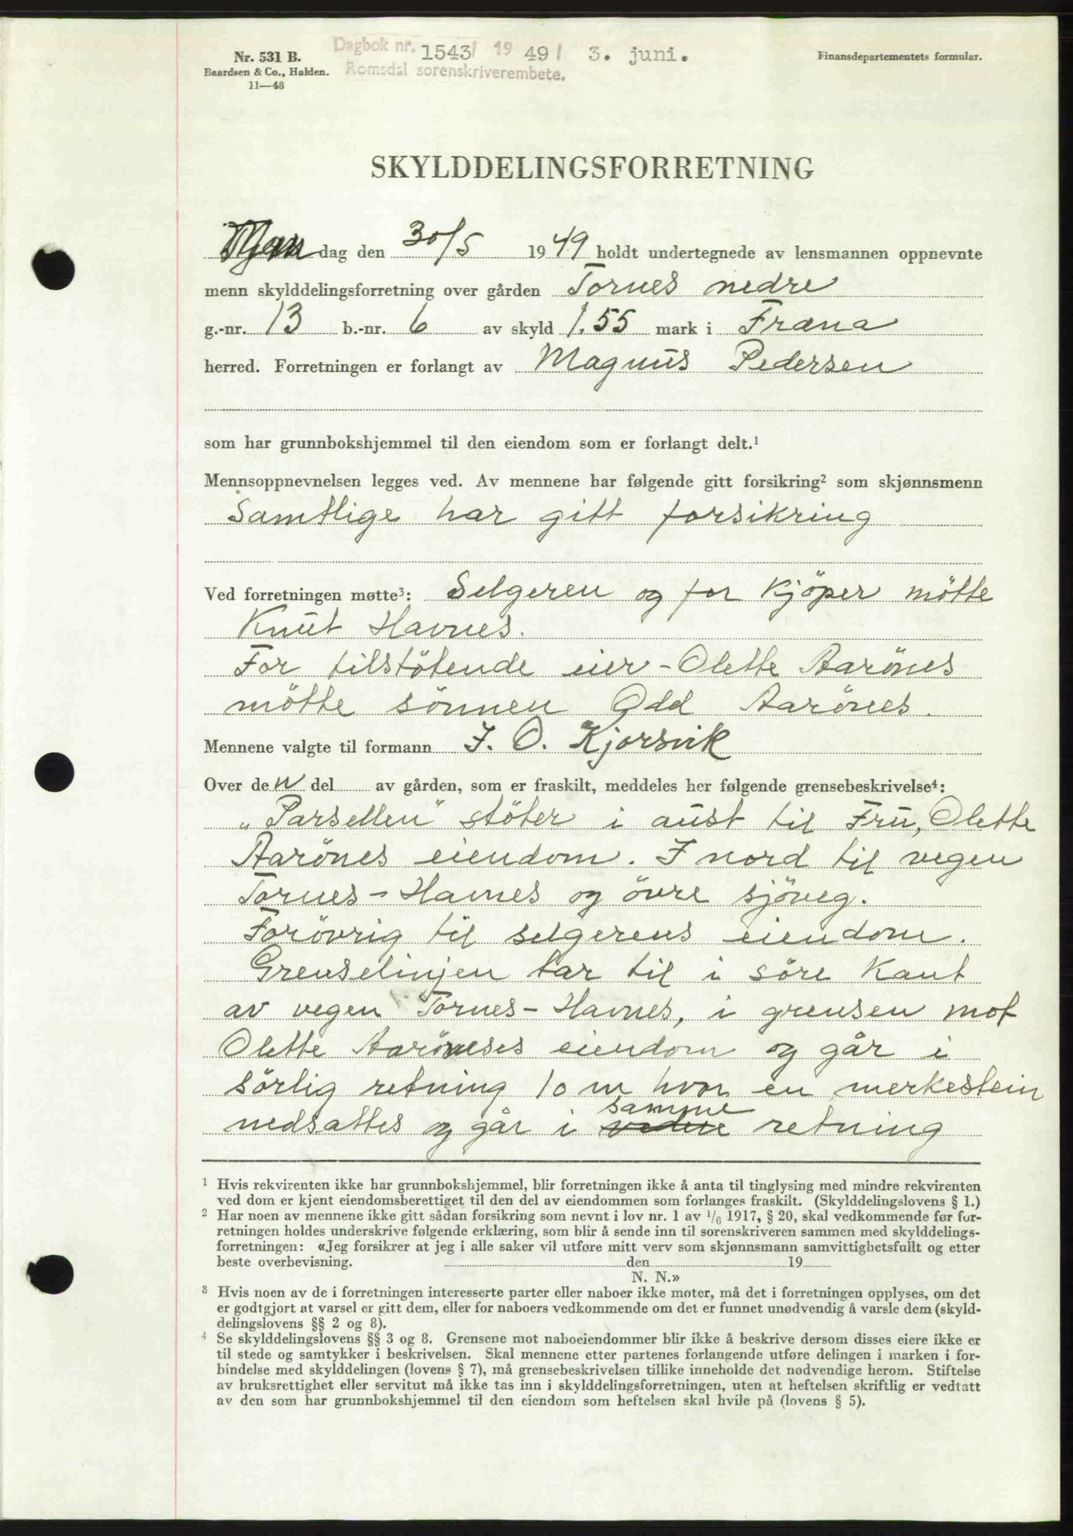 Nr. 531 B.
Baardsen & Co., Halden.
11—48
Dagbok nr. 1543/ 19 49/ 3. juni.
Romsdal sorenskriverembete.
Finansdepartementets formular.
SKYLDDELINGSFORRETNING
Man dag den 30/5 1949 holdt undertegnede av lensmannen oppnevnte
menn skylddelingsforretning over gården Tornes nedre
g.-nr. 13 b.-nr. 6 av skyld 1.55 mark i Fræna
herred. Forretningen er forlangt av Magnus Pedersen
som har grunnbokshjemmel til den eiendom som er forlangt delt.¹
Mennsoppnevnelsen legges ved. Av mennene har følgende gitt forsikring² som skjønnsmenn
Samtlige har gitt forsikring
Ved forretningen møtte³: Selgeren og for kjöper mötte
Knut Havnes.
For tilstötende eier - Olette Aarönes
mötte sönnen Odd Aarönes.
Mennene valgte til formann J. O. Kjorsvik
Over den del av gården, som er fraskilt, meddeles her følgende grensebeskrivelse⁴:
„Parsellen" stöter i aust til Fru, Olette
Aarönes eiendom. I nord til vegen
Tornes - Havnes og övre sjöveg.
Forövrig til selgerens eiendom.
Grenselinjen tar til i söre kant
av vegen Tornes - Havnes, i grensen mot
Olette Aaröneses eiendom og går i
sörlig retning 10 m hvor en merkestein
samme
nedsattes og går i retning
¹ Hvis rekvirenten ikke har grunnbokshjemmel, blir forretningen ikke å anta til tinglysing med mindre rekvirenten
ved dom er kjent eiendomsberettiget til den del av eiendommen som forlanges fraskilt. (Skylddelingslovens § 1.)
² Har noen av mennene ikke gitt sådan forsikring som nevnt i lov nr. 1 av ¹/₆ 1917, § 20, skal vedkommende før for-
retningen holdes underskrive følgende erklæring, som blir å sende inn til sorenskriveren sammen med skylddelings-
forretningen: «Jeg forsikrer at jeg i alle saker vil utføre mitt verv som skjønnsmann samvittighetsfullt og etter
beste overbevisning. den 19
N. N.»
³ Hvis noen av de i forretningen interesserte parter eller naboer ikke møter, må det i forretningen opplyses, om det
er godtgjort at varsel er gitt dem, eller for naboers vedkommende om det er funnet unødvendig å varsle dem (skyld-
delingslovens §§ 2 og 8).
⁴ Se skylddelingslovens §§ 3 og 8. Grensene mot naboeiendommer blir ikke å beskrive dersom disses eiere ikke er
til stede og samtykker i beskrivelsen. Skal mennene etter partenes forlangende utføre delingen i marken i for-
bindelse med skylddelingen (lovens § 7), må grensebeskrivelsen tillike inneholde det nødvendige herom. Stiftelse
av bruksrettighet eller servitut må ikke tas inn i skylddelingsforretningen, uten at heftelsen skriftlig er vedtatt
av den som har grunnbokshjemmel til den eiendom som heftelsen skal hvile på (lovens § 5).